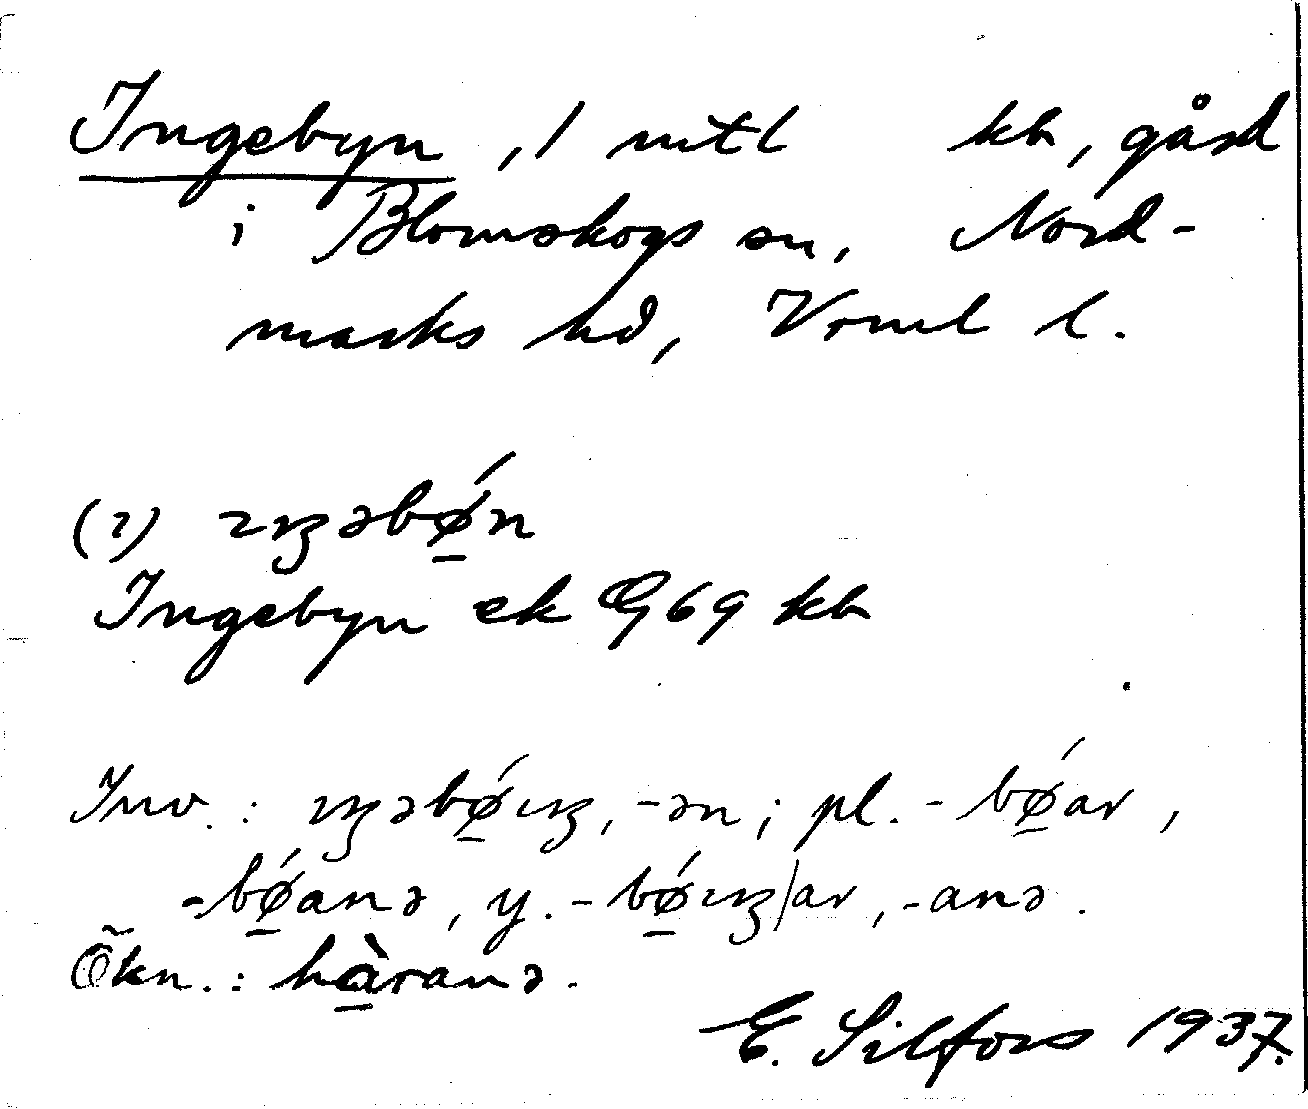 Ingebyn, 1 mtl kr, gård
i Blomskogs sn, Nord-
marks hd, Vrml l.
(ı) ıŋəbǿ̠n
Ingebyn ek G69 kr
Inv.: ıŋəbǿ̠ıŋ, -ən; pl. -bǿ̠ar,
-bǿ̠anə, y. -bǿ̠ıŋ/ar, -anə.
Ökn.: hà̠ranə.
E. Silfors 1937.